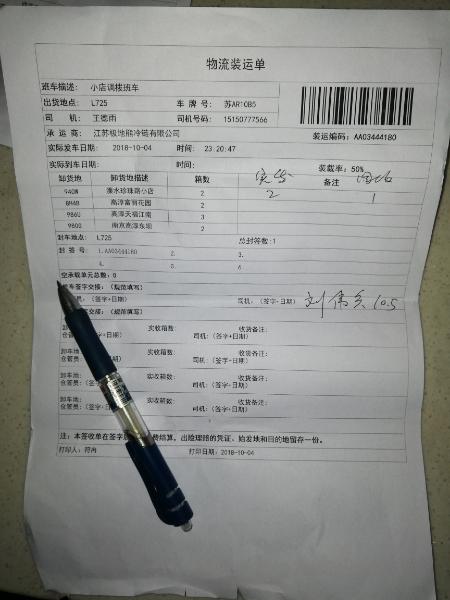 物流装运单
班车描述: 小店调拨班车
出货地点: L725 车 牌 号: 苏AR10B5
司 机: 王德雨 司机号码: 15150777566
承 运 商: 江苏极地熊冷链有限公司 装运编码: AA03444180
实际发车日期: 2018-10-04 时间: 23:20:47
实际到车日期: 时间: 装载率: 50%
卸货地 卸货地描述 箱数 备注
940W 溧水珍珠路小店 2 2 1
8H4B 高淳富丽花园 2
986U 高淳天福江南 3
980G 南京高淳东坝 2
封车地点: L725 总封签数:1
封 签 号: 1.AA03444180 2. 3.
4. 5. 6.
空承载单元总数: 0
车签字交接: (规范填写)
员: (签字+日期) 司机: (签字+日期) 10.5
字交接: (规范填写)
卸车地: 实收箱数: 收货备注:
仓管员: (签字+日期) 司机: (签字+日期)
卸车地: 实收箱数: 收货备注:
仓管员: (签字+日期) 司机: (签字+日期)
卸车地: 实收箱数: 收货备注:
仓管员: (签字+日期) 司机: (签字+日期)
卸车地: 实收箱数: 收货备注:
仓管员: (签字+日期) 司机: (签字+日期)
注: 本签收单在签字后 费结算, 出险理赔的凭证, 始发地和目的地留存一份。
打印人: 符冉 打印日期: 2018-10-04